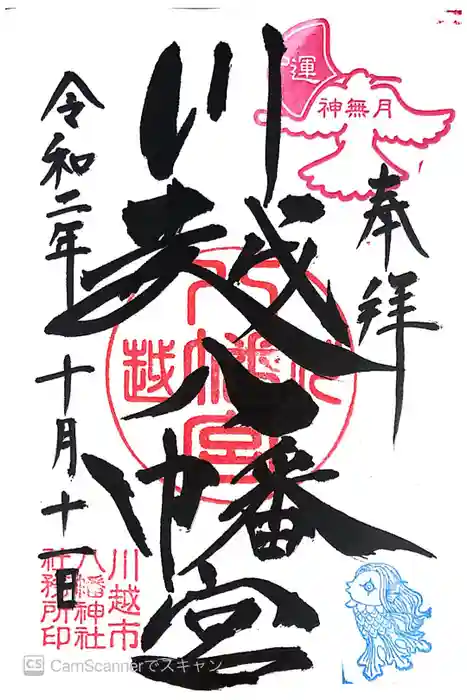 奉拝
運
神無月
川越八幡宮
川越八幡宮
令和二年十月十一日
川越市
八幡神社
社務所印
CS CamScannerでスキャン